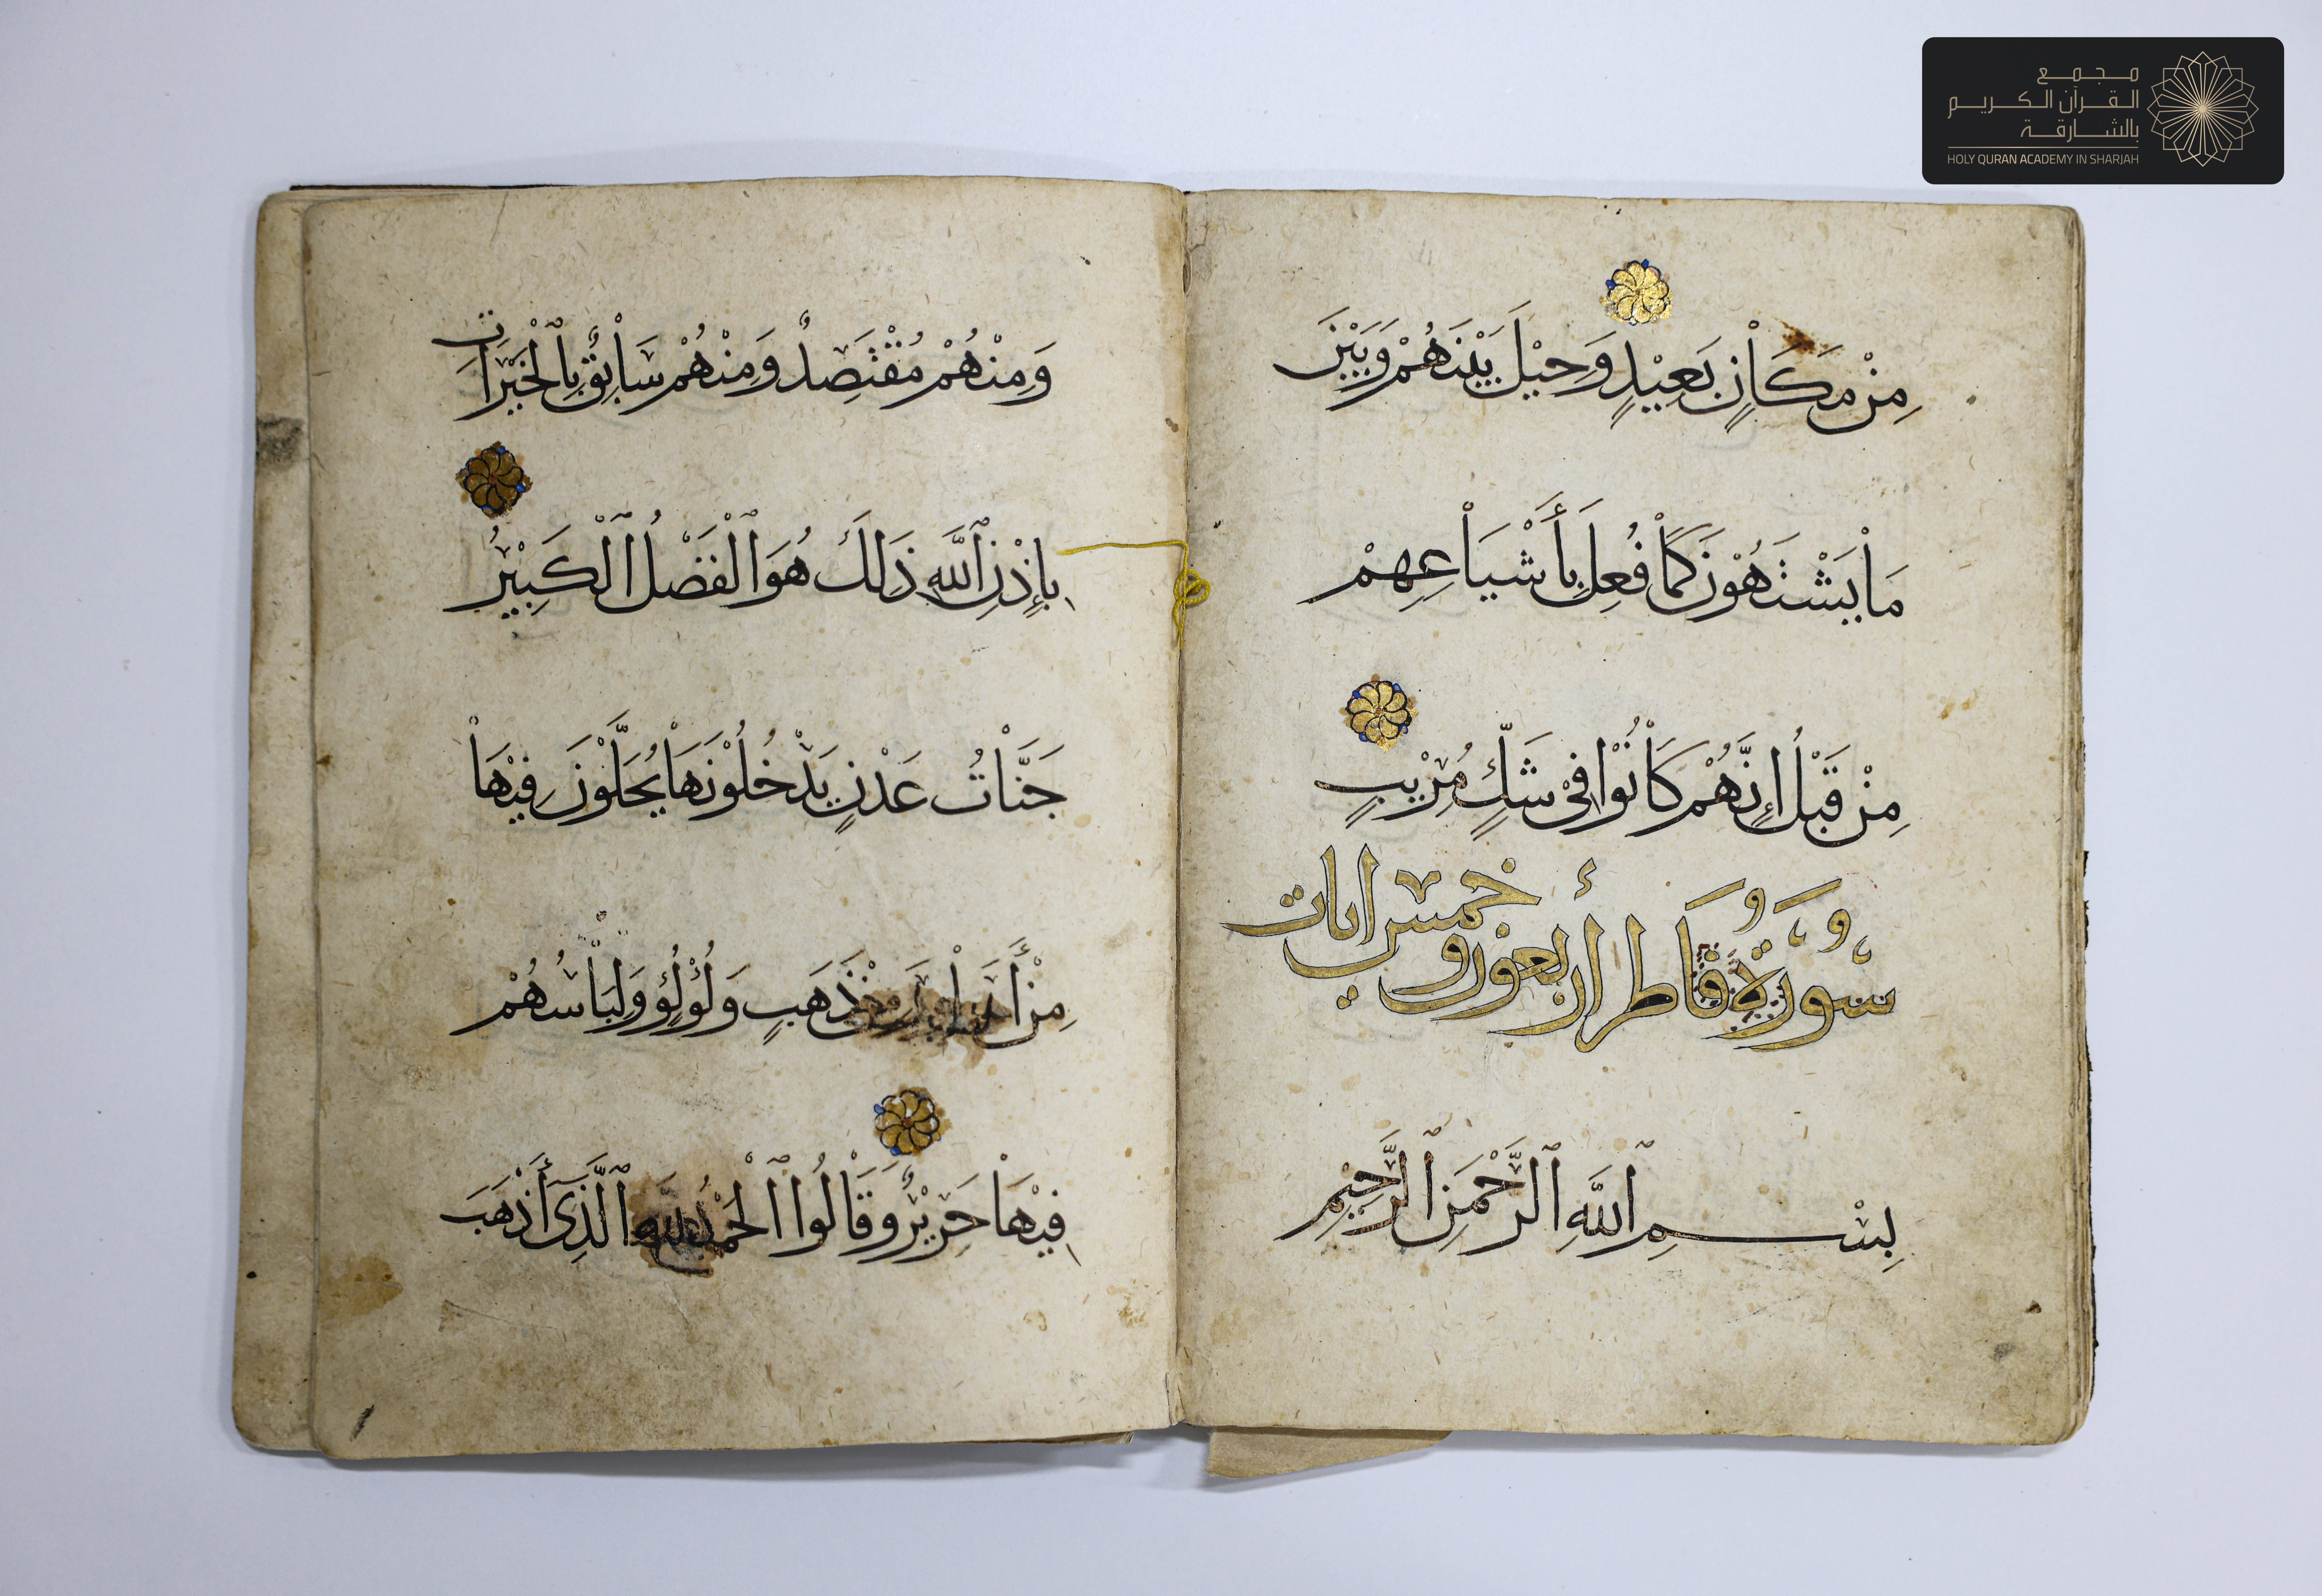 مجمع
القرآن الكريم
بالشارقة
HOLY QURAN ACADEMY IN SHARJAH
مِنْ مَكَاْنٍ بَعِيْدٍ وَحِيْلَ بَيْنَهُمْ وَبَيْنَ
مَاْ يَشْتَهُوْنَ كَمَاْ فُعِلَ بِأَشْيَاْعِهِمْ
مِنْ قَبْلُ إِنَّهُمْ كَاْنُوْا فِيْ شَكٍّ مُرِيْبٍ
سُوْرَةُ فَاطر أربعون وخمس ايات
بِسْمِ ٱللَّهِ ٱلرَّحْمَنِ ٱلرَّحِيْمِ
وَمِنْهُمْ مُقْتَصِدٌ وَمِنْهُمْ سَاْبِقٌ بِٱلْخَيْرَاتِ
بِإِذْنِ ٱللَّهِ ذَلِكَ هُوَ ٱلْفَضْلُ ٱلْكَبِيْرُ
جَنَّاْتُ عَدْنٍ يَدْخُلُوْنَهَاْ يُحَلَّوْنَ فِيْهَاْ
مِنْ أَسَاْوِرَ مِنْ ذَهَبٍ وَلُؤْلُؤٍ وَلِبَاْسُهُمْ
فِيْهَاْ حَرِيْرٌ وَقَاْلُوا ٱلْحَمْدُ لِلَّهِ ٱلَّذِيٓ أَذْهَبَ